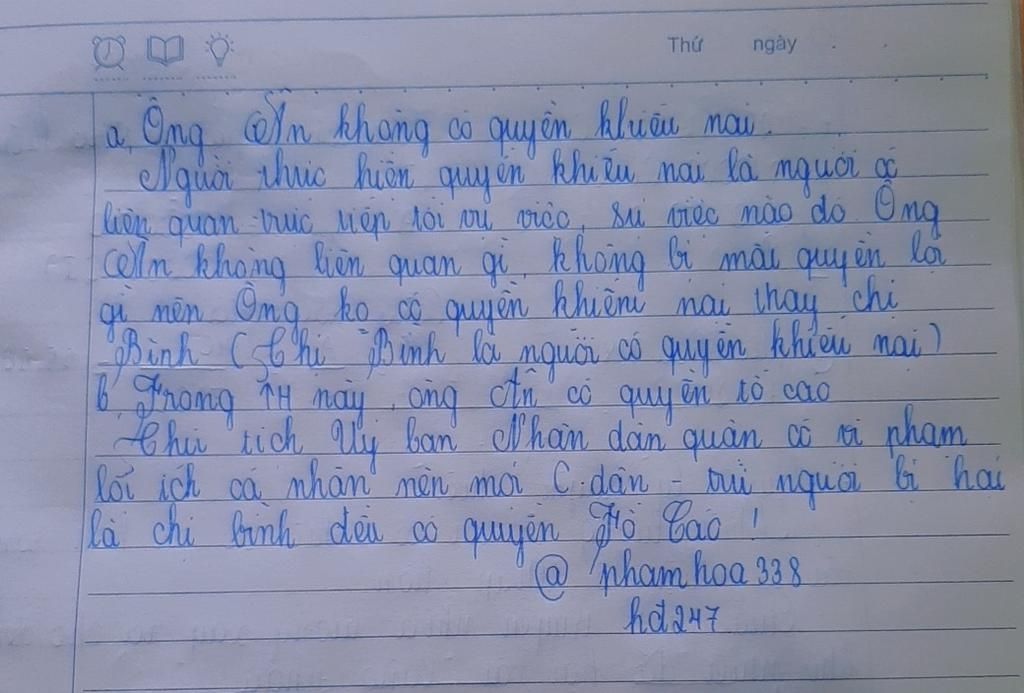 Thứ ngày
a, Ông Ân không có quyền khiếu nại.
Người thực hiện quyền khiếu nại là người có
liên quan trực tiếp tới vụ việc, sự việc nào đó Ông
Ân không liên quan gì, không bị mất quyền lợi
gì nên Ông ko có quyền khiếu nại thay chị
Bình (Chị Bình là người có quyền khiếu nại)
b, Trong TH này, ông Ân có quyền tố cáo
Chủ tịch Uỷ ban Nhân dân quận có vi phạm
lối ích cá nhân nên mọi C.dân - trừ người bị hại
là chị bình đều có quyền Tố Cáo !
@ phamhoa338
hd247